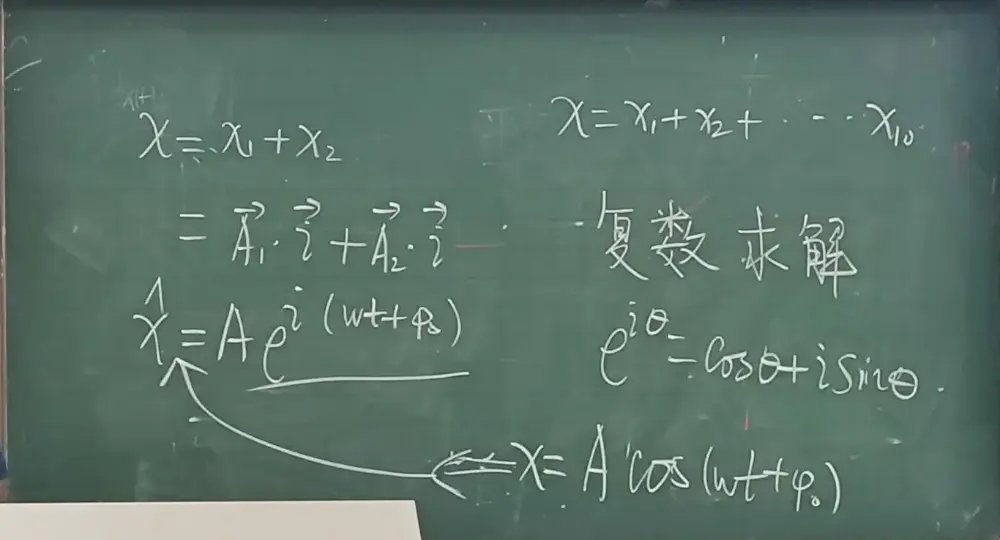 x = x₁ + x₂
= A⃗₁ · i⃗ + A⃗₂ · i⃗
x̂ = A e^{i(ωt+φ₀)}
x = x₁ + x₂ + · - - · x₁₀
复数求解
e^{iθ} = cosθ + i sinθ.
⇐ x = A cos(ωt+φ₀)